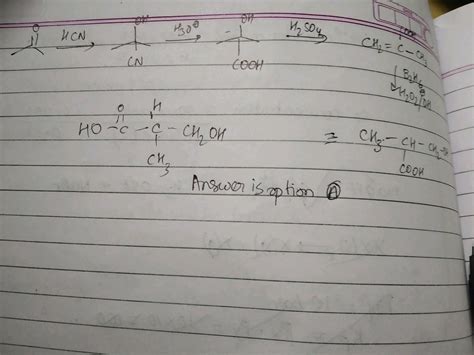 O
HCN
OH
CN
H3O⊕
OH
COOH
H2SO4
COOH
CH2 = C – CH3
B2H6
H2O2/OH
HO – C – C – CH2OH
O H
CH3
≡ CH3 – CH – CH2 – OH
COOH
Answer is option Ⓐ